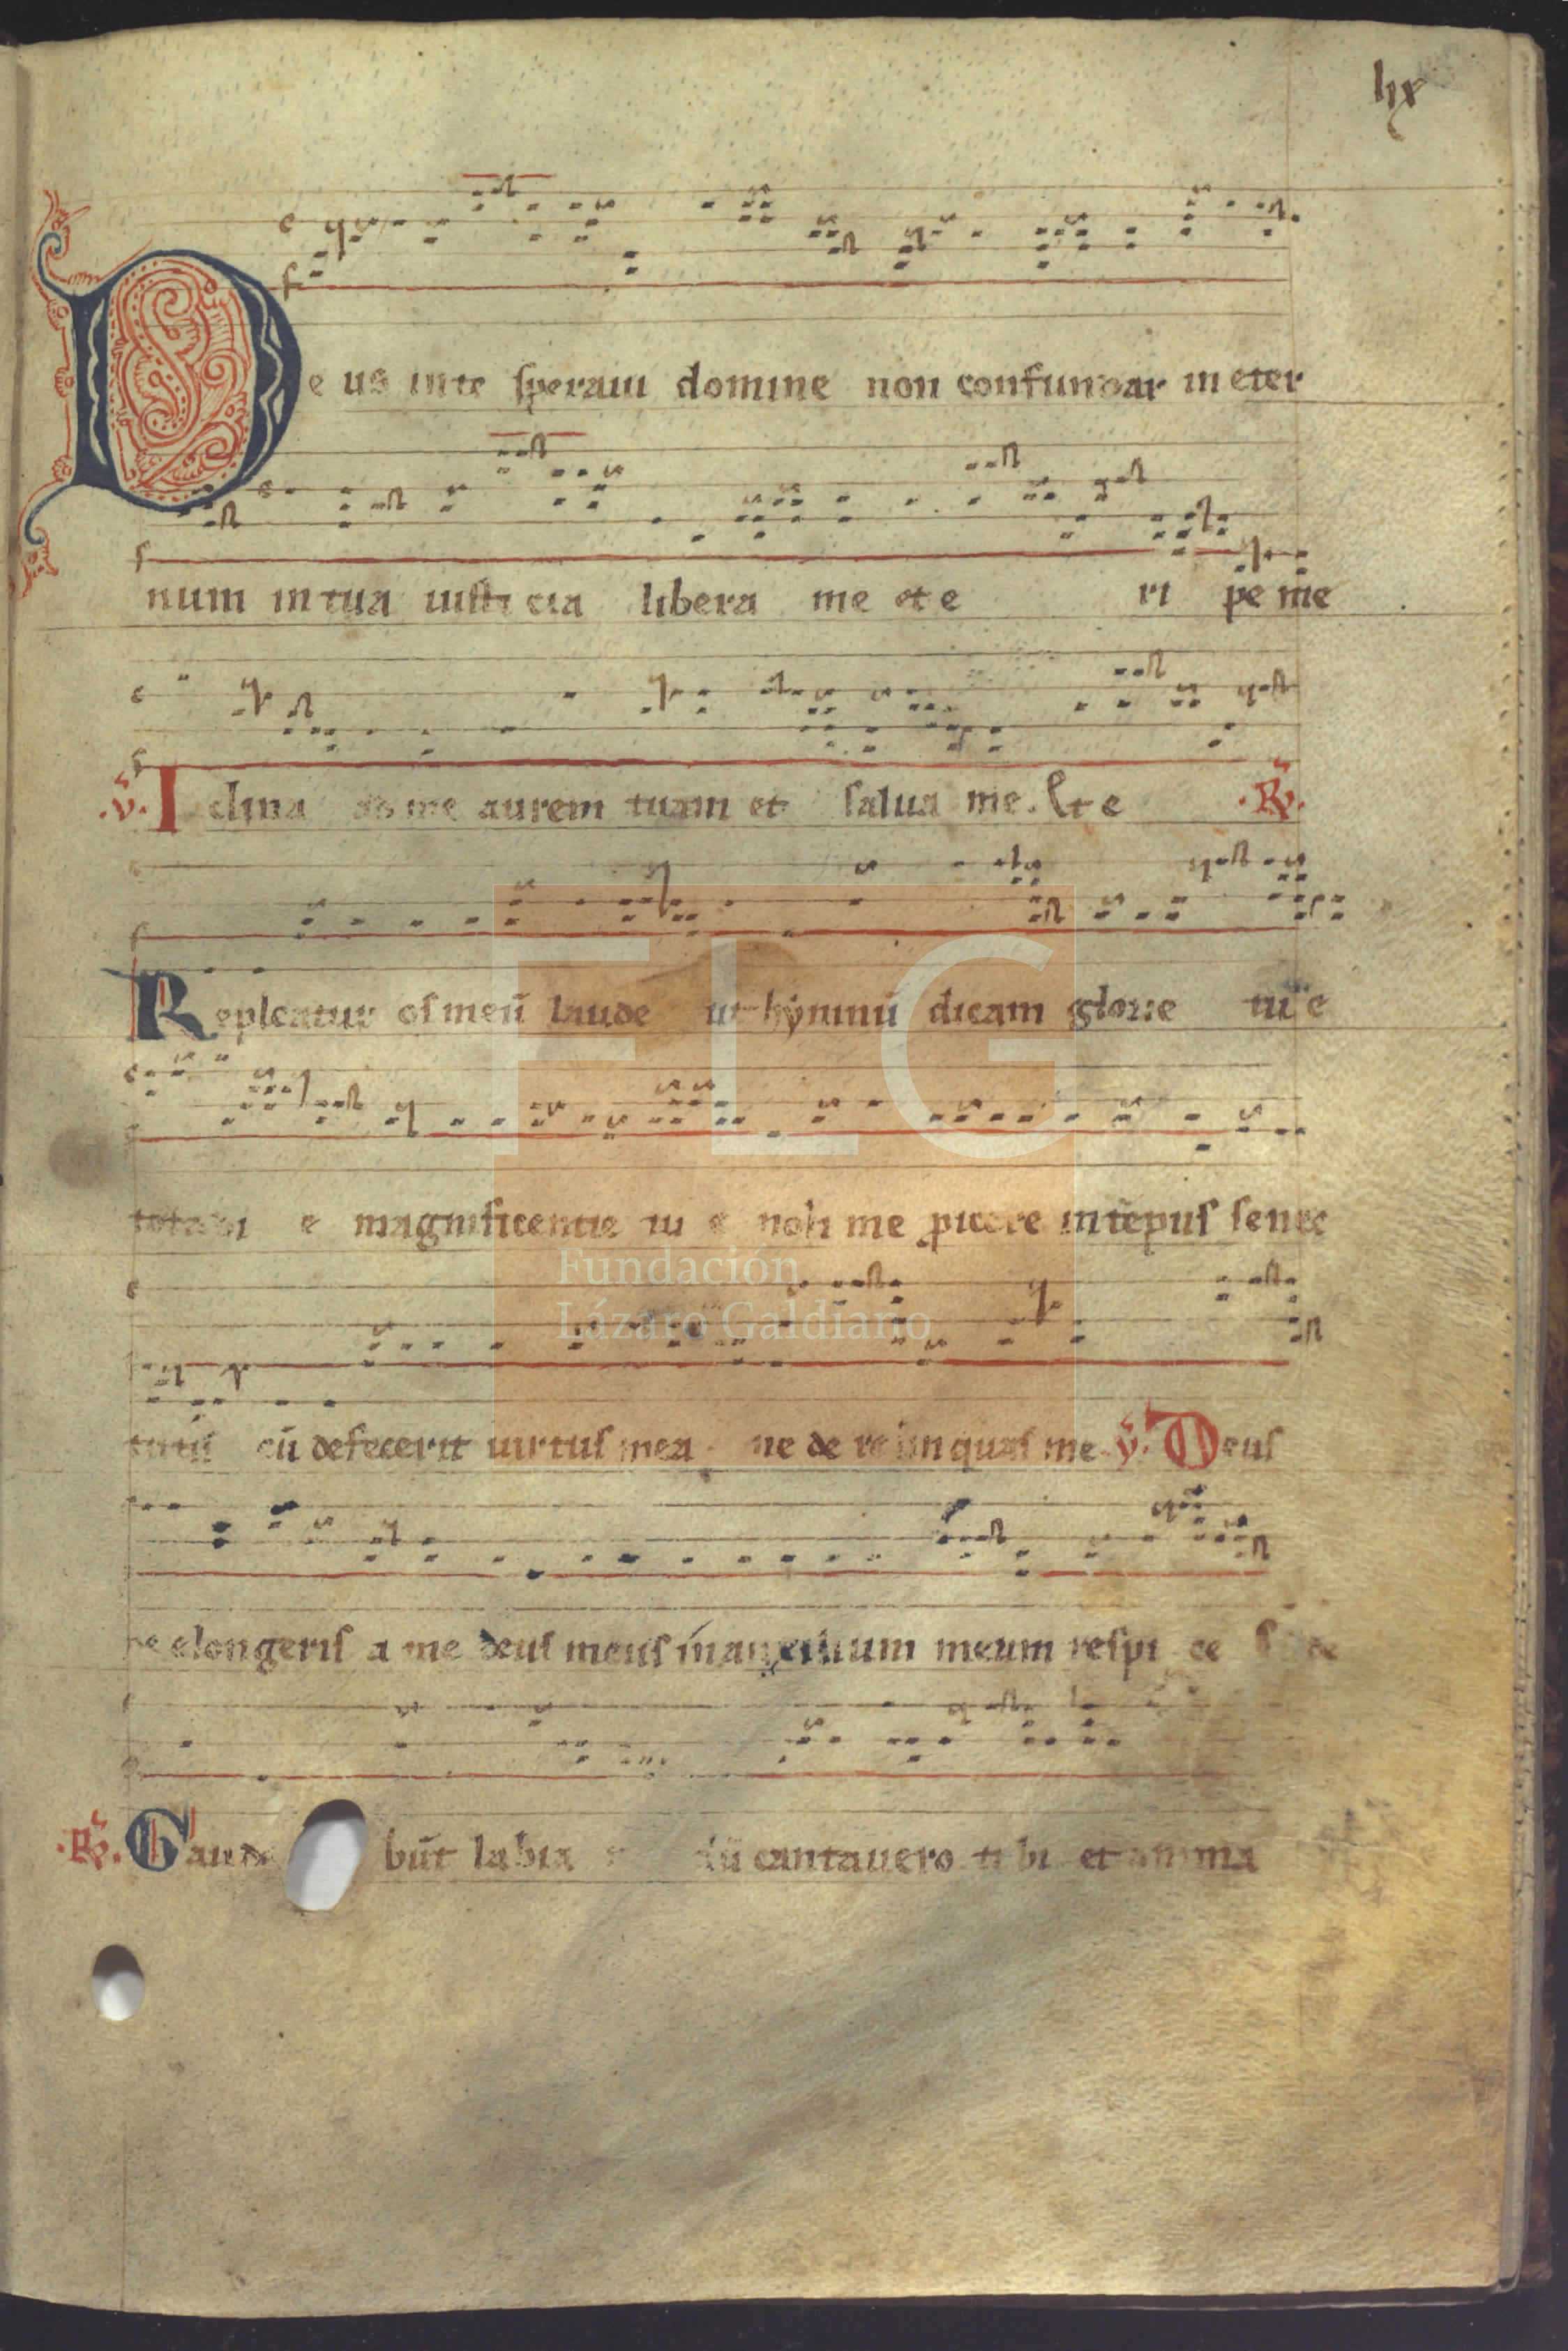 lix
Deus in te speraui domine non confundar in eter
num in tua iusticia libera me et e ri pe me
v. Iclina ad me aurem tuam et salua me. Et e R.
Repleatur os meū laude ut hẏmnū dicam glorie tu e
tota di e magnificentie tu e noli me ꝓicere in tēpus senec
tutis cū defecerit uirtus mea ne de relinquas me v. Deus
ne elongeris a me deus meus in auxilium meum respi ce
R. Gaude būt labia dū cantauero ti bi et anima
FLG
Fundación
Lázaro Galdiano